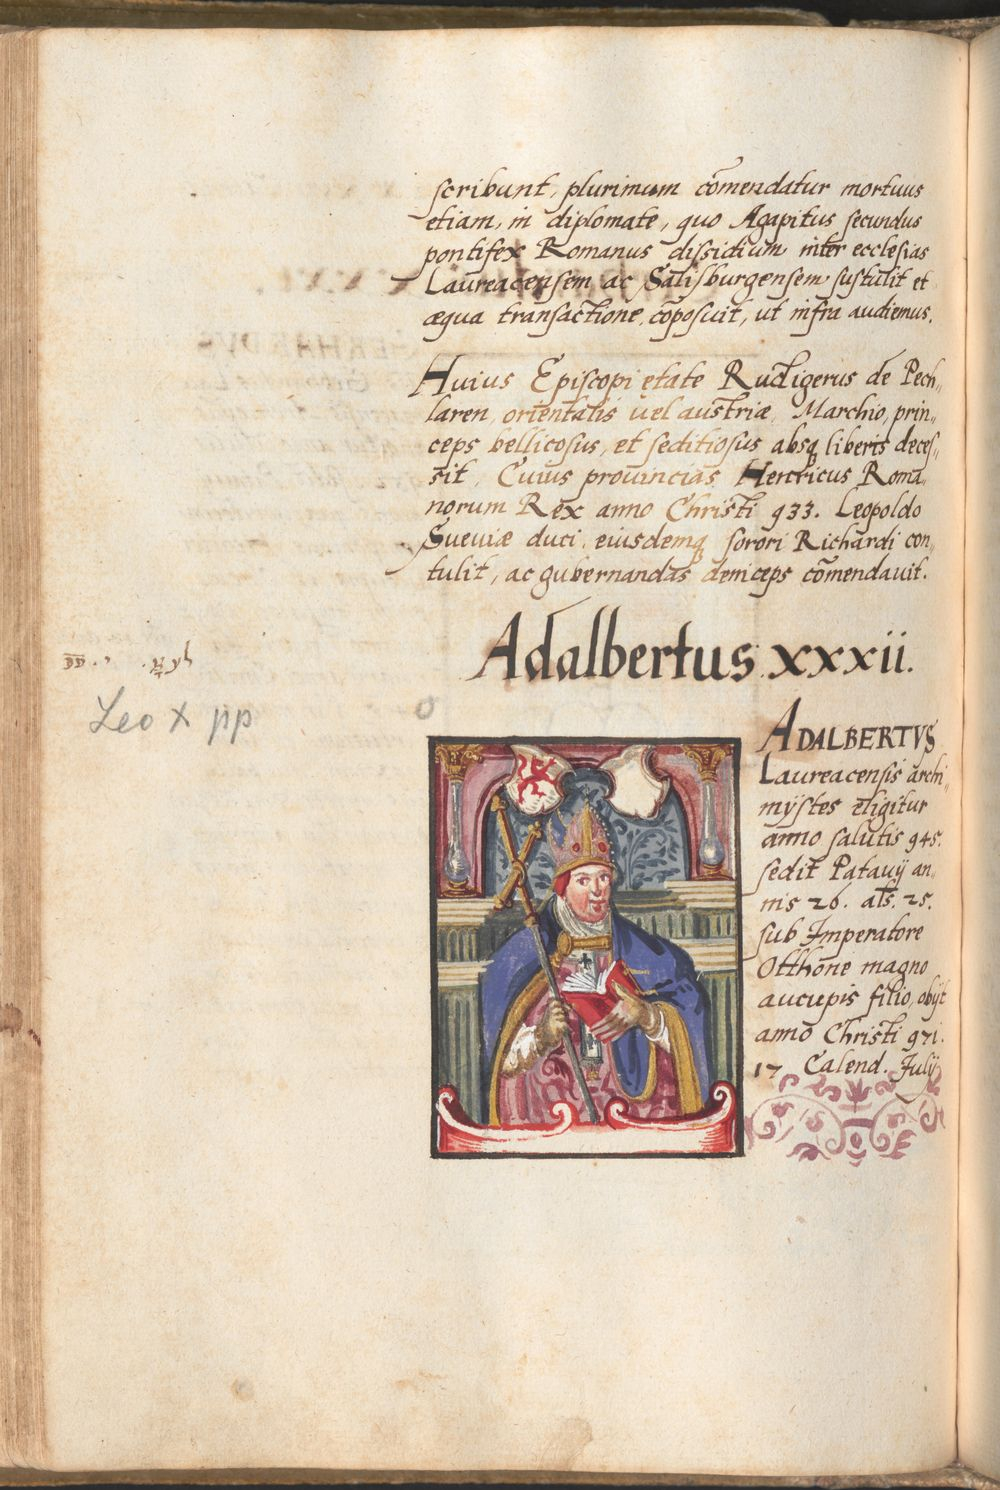 scribunt, plurimum cõmendatur mortuus
etiam, in diplomate, quo Agapitus secundus
pontifex Romanus dissidium inter ecclesias
Laureacensem ac Salisburgensem sustulit et
æqua transactione, cõposuit, ut infra audiemus.
Huius Episcopi etate Rudigerus de Pech„
laren, orientalis uel austriæ, Marchio, prin„
ceps bellicosus, et seditiosus absq liberis deces„
sit, Cuius prouincias Henricus Roma„
norum Rex anno Christi 933. Leopoldo
Sueuiæ duci, eiusdemq sorori Richardi con„
tulit, ac gubernandas deniceps cõmendauit.
Adalbertus xxxii.
Leo X pp
ADALBERTVS
Laureacensis archi„
mÿstes eligitur
anno salutis 945.
sedit Patauÿ an„
nis 26. als. 25.
sub Imperatore
Otthone magno
aucupis filio, obÿt
anno Christi 971.
17 Calend. Julÿ